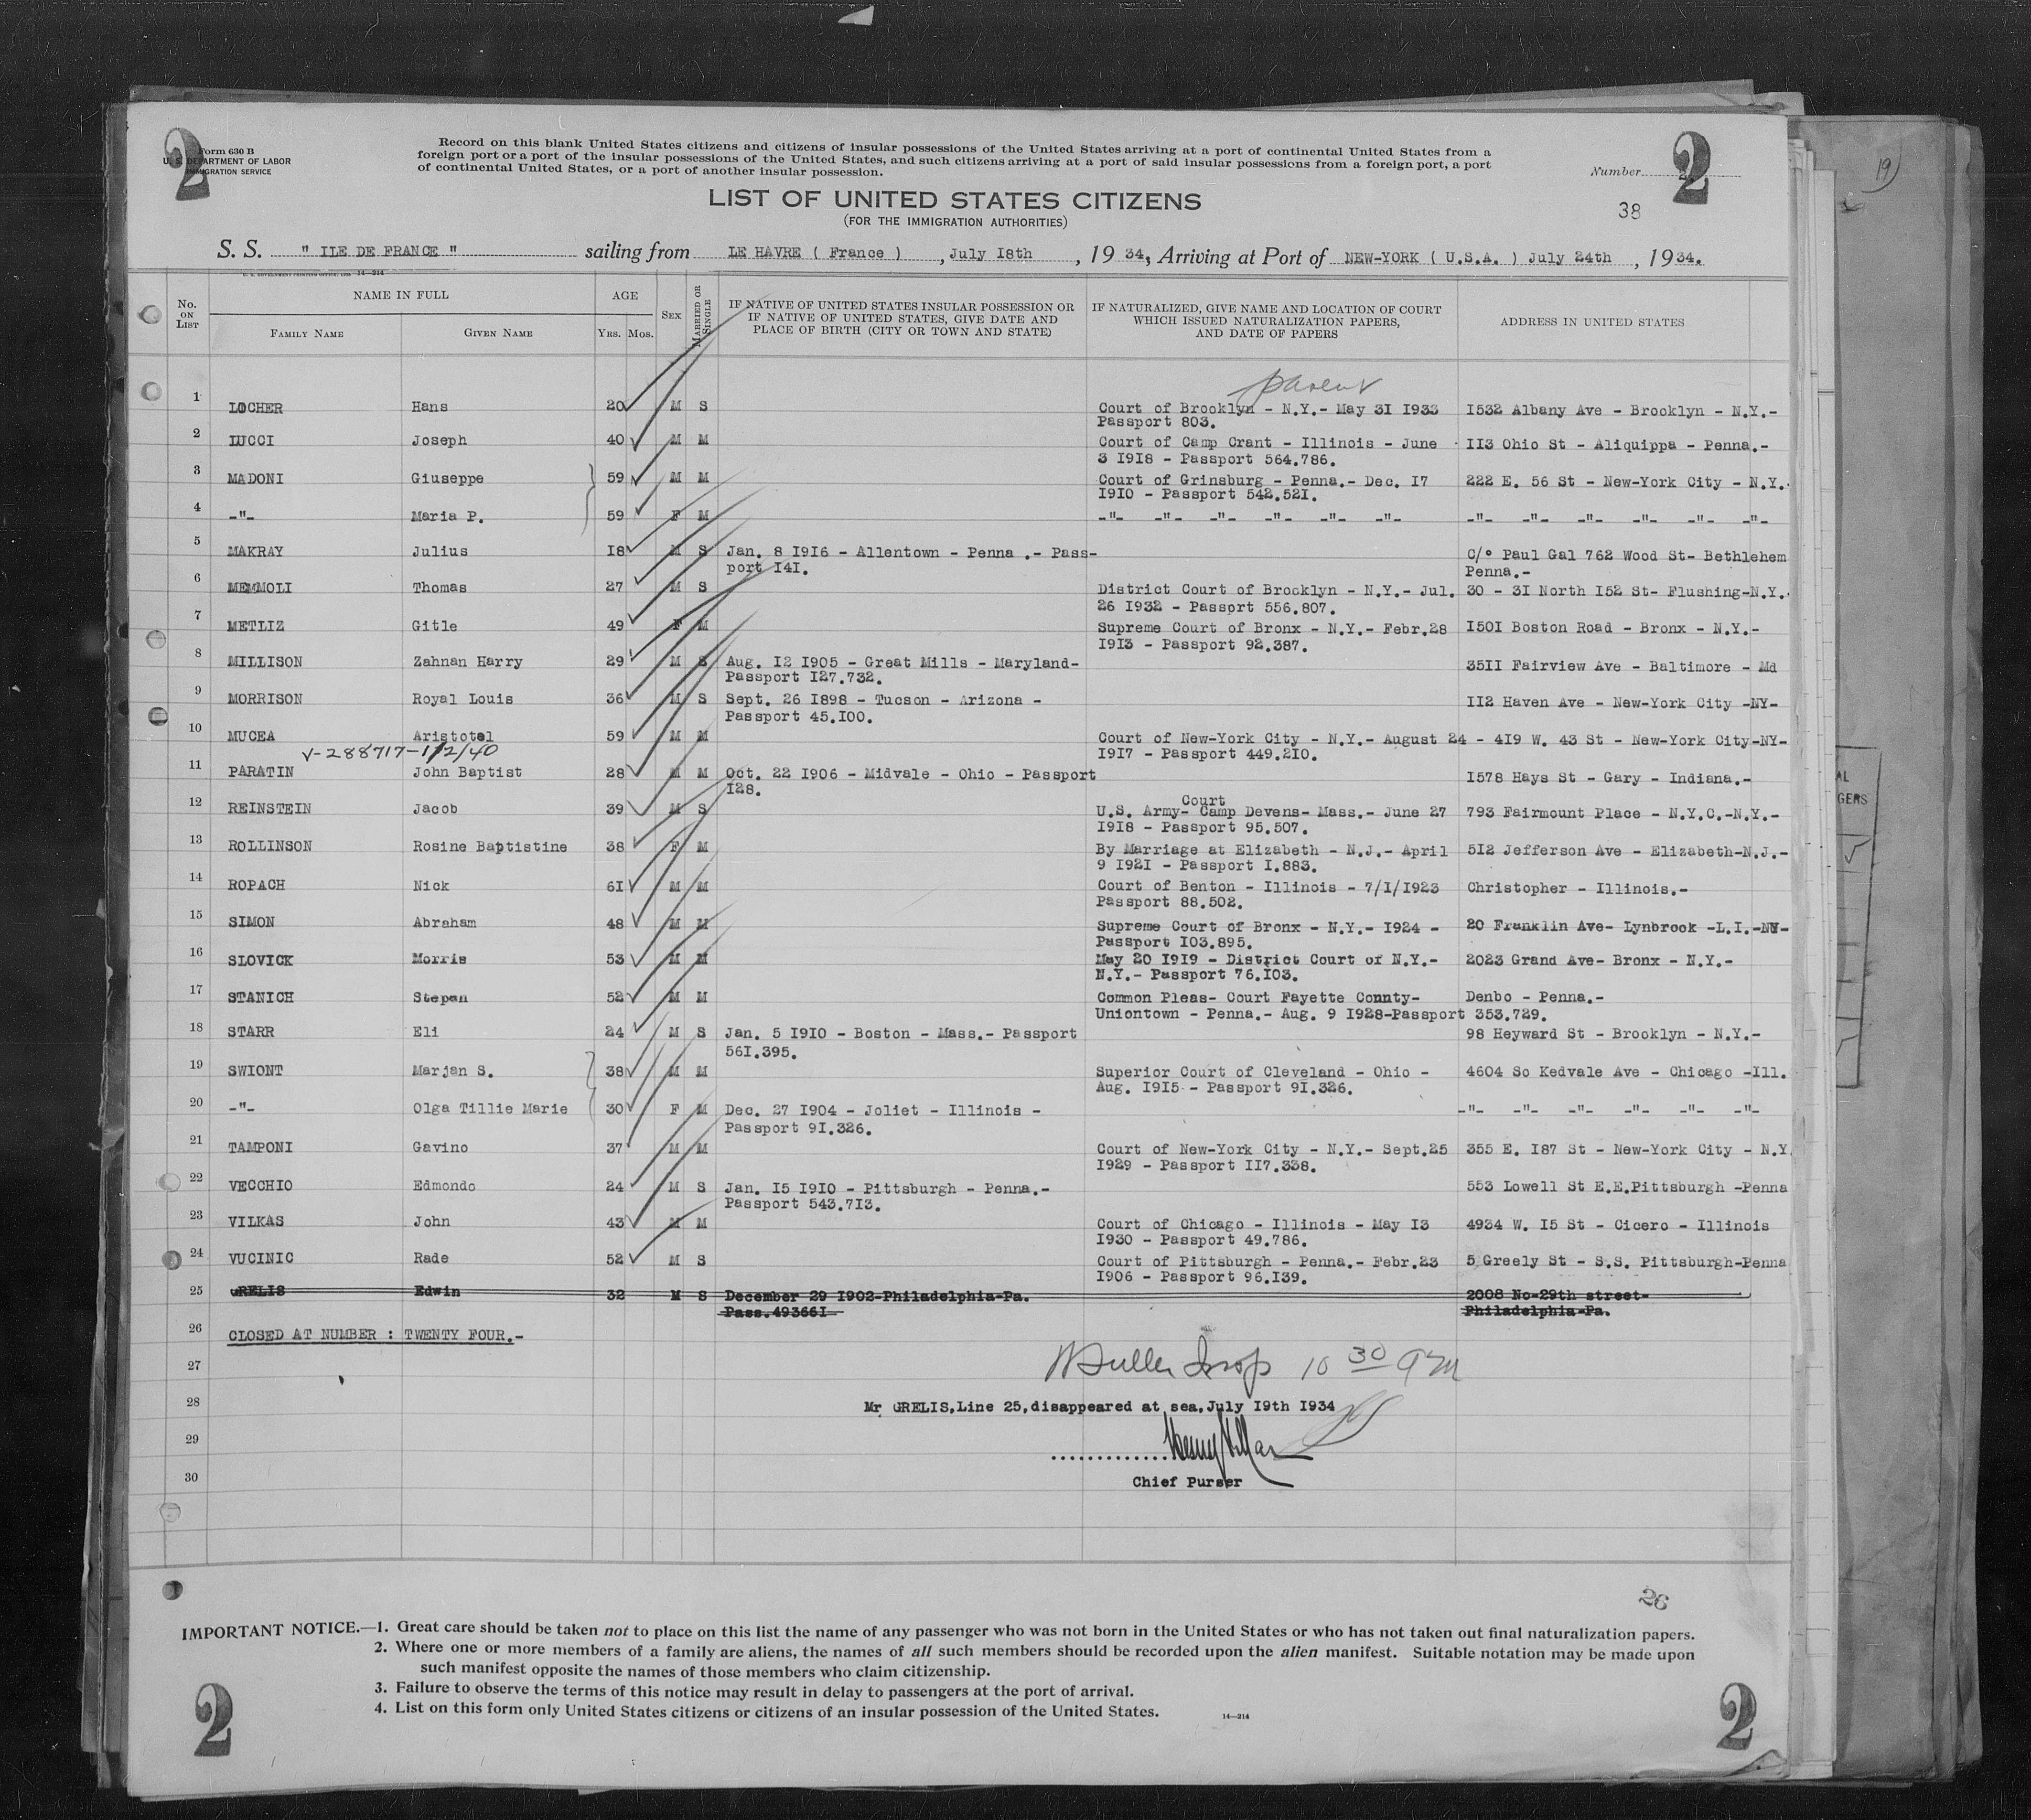 2
2
Form 630 B
U. S. DEPARTMENT OF LABOR
IMMIGRATION SERVICE
Record on this blank United States citizens and citizens of insular possessions of the United States arriving at a port of continental United States from a
foreign port or a port of the insular possessions of the United States, and such citizens arriving at a port of said insular possessions from a foreign port, a port
of continental United States, or a port of another insular possession.
Number 2.
19
LIST OF UNITED STATES CITIZENS
(FOR THE IMMIGRATION AUTHORITIES)
38
S. S. " ILE DE FRANCE " sailing from LE HAVRE ( France ) , July I8th , 19 34, Arriving at Port of NEW-YORK ( U.S.A. ) July 24th , 19 34.
14-214
No. ON LIST
NAME IN FULL
FAMILY NAME
GIVEN NAME
AGE
YRS. MOS.
SEX
MARRIED OR SINGLE
IF NATIVE OF UNITED STATES INSULAR POSSESSION OR
IF NATIVE OF UNITED STATES, GIVE DATE AND
PLACE OF BIRTH (CITY OR TOWN AND STATE)
IF NATURALIZED, GIVE NAME AND LOCATION OF COURT
WHICH ISSUED NATURALIZATION PAPERS,
AND DATE OF PAPERS
ADDRESS IN UNITED STATES
parent
1 LOCHER Hans 20 M S Court of Brooklyn - N.Y.- May 3I I933 I532 Albany Ave - Brooklyn - N.Y.-
Passport 803.
2 LUCCI Joseph 40 M M Court of Camp Crant - Illinois - June II3 Ohio St - Aliquippa - Penna.-
3 I9I8 - Passport 564.786.
3 MADONI Giuseppe 59 M M Court of Grinsburg - Penna.- Dec. I7 222 E. 56 St - New-York City - N.Y.
I9I0 - Passport 542.52I.
4 -"- Maria P. 59 F M -"- -"- -"- -"- -"- -"- -"- -"- -"- -"- -"- -"-
5 MAKRAY Julius I8 M S Jan. 8 I9I6 - Allentown - Penna .- Pass- C/o Paul Gal 762 Wood St- Bethlehem
port I4I. Penna.-
6 MEMMOLI Thomas 27 M S District Court of Brooklyn - N.Y.- Jul. 30 - 3I North I52 St- Flushing-N.Y.
26 I932 - Passport 556.807.
7 METLIZ Gitle 49 F M Supreme Court of Bronx - N.Y.- Febr.28 I50I Boston Road - Bronx - N.Y.-
I9I3 - Passport 92.387.
8 MILLISON Zahnan Harry 29 M S Aug. I2 I905 - Great Mills - Maryland- 35II Fairview Ave - Baltimore - Md
Passport I27.732.
9 MORRISON Royal Louis 36 M S Sept. 26 I898 - Tucson - Arizona - II2 Haven Ave - New-York City -NY-
Passport 45.I00.
10 MUCEA Aristotel 59 M M Court of New-York City - N.Y.- August 24 - 4I9 W. 43 St - New-York City-NY-
V-288717-1/2/40 I9I7 - Passport 449.2I0.
11 PARATIN John Baptist 28 M M Oct. 22 I906 - Midvale - Ohio - Passport I578 Hays St - Gary - Indiana.-
I28.
Court
12 REINSTEIN Jacob 39 M S U.S. Army- Camp Devens- Mass.- June 27 793 Fairmount Place - N.Y.C.-N.Y.-
I9I8 - Passport 95.507.
13 ROLLINSON Rosine Baptistine 38 F M By Marriage at Elizabeth - N.J.- April 5I2 Jefferson Ave - Elizabeth-N.J.-
9 I92I - Passport I.883.
14 ROPACH Nick 6I M M Court of Benton - Illinois - 7/I/I923 Christopher - Illinois.-
Passport 88.502.
15 SIMON Abraham 48 M M Supreme Court of Bronx - N.Y.- I924 - 20 Franklin Ave- Lynbrook -L.I.-NY-
Passport I03.895.
16 SLOVICK Morris 53 M M May 20 I9I9 - District Court of N.Y.- 2023 Grand Ave- Bronx - N.Y.-
N.Y.- Passport 76.I03.
17 STANICH Stepan 52 M M Common Pleas- Court Fayette County- Denbo - Penna.-
Uniontown - Penna.- Aug. 9 I928-Passport 353.729.
18 STARR Eli 24 M S Jan. 5 I9I0 - Boston - Mass.- Passport 98 Heyward St - Brooklyn - N.Y.-
56I.395.
19 SWIONT Marjan S. 38 M M Superior Court of Cleveland - Ohio - 4604 So Kedvale Ave - Chicago -Ill.
Aug. I9I5 - Passport 9I.326.
20 -"- Olga Tillie Marie 30 F M Dec. 27 I904 - Joliet - Illinois - -"- -"- -"- -"- -"- -"-
Passport 9I.326.
21 TAMPONI Gavino 37 M M Court of New-York City - N.Y.- Sept.25 355 E. I87 St - New-York City - N.Y.
I929 - Passport II7.338.
22 VECCHIO Edmondo 24 M S Jan. I5 I9I0 - Pittsburgh - Penna.- 553 Lowell St E.E.Pittsburgh -Penna
Passport 543.7I3.
23 VILKAS John 43 M M Court of Chicago - Illinois - May I3 4934 W. I5 St - Cicero - Illinois
I930 - Passport 49.786.
24 VUCINIC Rade 52 M S Court of Pittsburgh - Penna.- Febr.23 5 Greely St - S.S. Pittsburgh-Penna
I906 - Passport 96.I39.
25 GRELIS Edwin 32 M S December 29 I902-Philadelphia-Pa. 2008 No-29th street-
Pass.49366I Philadelphia-Pa.
26 CLOSED AT NUMBER : TWENTY FOUR.-
27 Insp 10 30 am
28 Mr GRELIS,Line 25,disappeared at sea,July I9th I934
29
Chief Purser
30
26
IMPORTANT NOTICE.—1. Great care should be taken not to place on this list the name of any passenger who was not born in the United States or who has not taken out final naturalization papers.
2. Where one or more members of a family are aliens, the names of all such members should be recorded upon the alien manifest. Suitable notation may be made upon
such manifest opposite the names of those members who claim citizenship.
3. Failure to observe the terms of this notice may result in delay to passengers at the port of arrival.
4. List on this form only United States citizens or citizens of an insular possession of the United States.
14-214
2
2